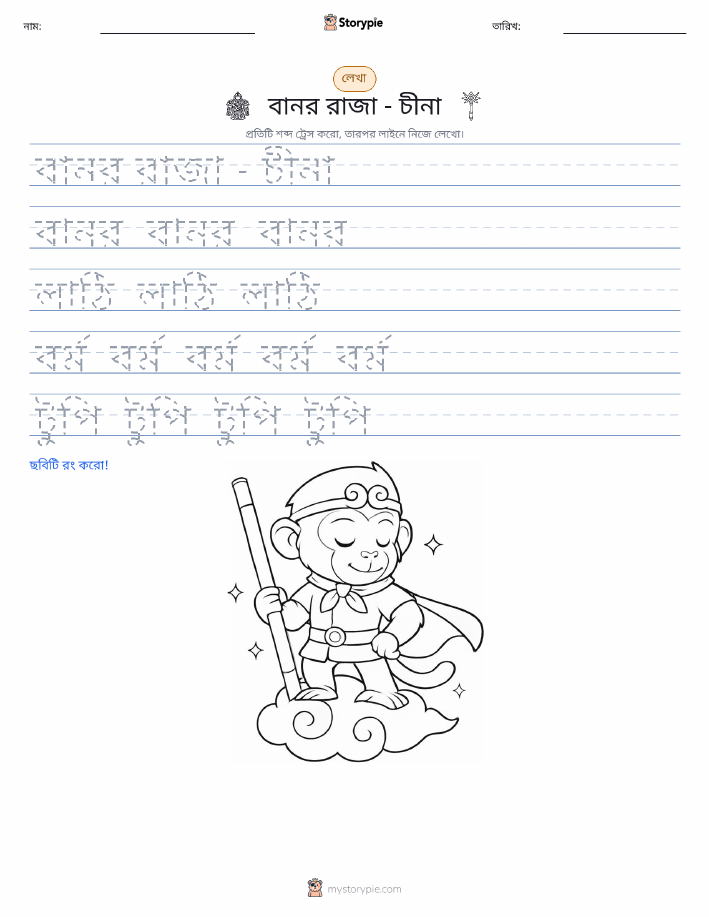 নাম:
Storypie
তারিখ:
লেখা
বানর রাজা - চীনা
প্রতিটি শব্দ ট্রেস করো, তারপর লাইনে নিজে লেখো।
বানর রাজা - চীনা
বানর বানর বানর
লাঠি লাঠি লাঠি
বর্ম বর্ম বর্ম বর্ম বর্ম
টুপি টুপি টুপি টুপি
ছবিটি রং করো!
mystorypie.com